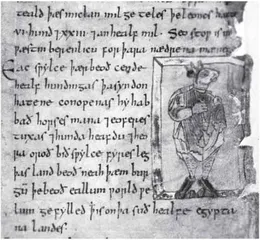 teald þæs miclan mil ge teles þe leones
vi hund 7 xxiii 7 an healf mil. Seo stow is un
wæstm berenlicu for þara nædrena mæneg
Eac swylce þær beoð cende
healf hundingas þa syndon
hatene conopenas hy hab
bað horses mana 7 eoferes
tuxas 7 hunda heafdu 7 heo
ra oroð bið swylce fyres leg
þas land beoð neah þæm bur
gum þe beoð eallum world we
lum gefylled þis on þa suð healfe egypta
na landes.